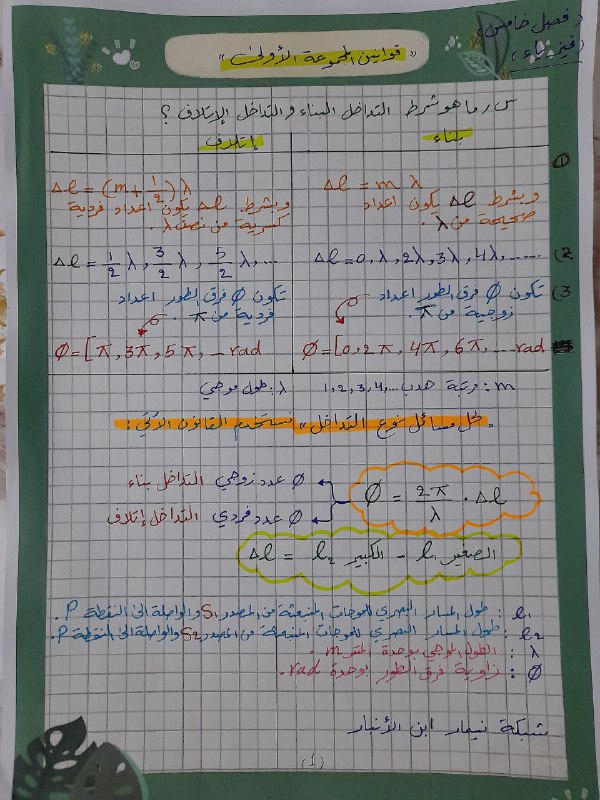 (فصل خامس)
(فيزياء)
« قوانين المجموعة الأولى »
س/ ما هو شرط التداخل البناء والتداخل الإتلاف ؟
بناء
إتلاف
1
Δℓ = m λ
وبشرط Δℓ يكون اعداد
صحيحة من λ.
Δℓ = (m + 1/2) λ
وبشرط Δℓ يكون اعداد فردية
كسرية من نصف λ.
2) Δℓ = 0, λ, 2λ, 3λ, 4λ, ......
Δℓ = 1/2 λ, 3/2 λ, 5/2 λ, ...
3) تكون Ø فرق الطور اعداد
زوجية من π.
تكون Ø فرق الطور اعداد
فردية من π.
Ø = [0, 2π, 4π, 6π, ... rad
Ø = [π, 3π, 5π, ... rad
m : مرتبة هدب ...1, 2, 3, 4 λ : طول موجي
. لحل مسائل نوع التداخل » نستخدم القانون الأتي :
Ø = 2π/λ . Δℓ
Ø عدد زوجي التداخل بناء
Ø عدد فردي التداخل إتلاف
Δℓ = ℓ2 الكبير - ℓ1 الصغير
ℓ1 : طول المسار البصري للموجات المنبعثة من المصدر S1 والواصلة الى النقطة P.
ℓ2 : طول المسار البصري للموجات المنبعثة من المصدر S2 والواصلة الى النقطة P.
λ : الطول الموجي بوحدة المتر m.
Ø : زاوية فرق الطور بوحدة rad.
شبكة نيمار ابن الأنبار
(1)